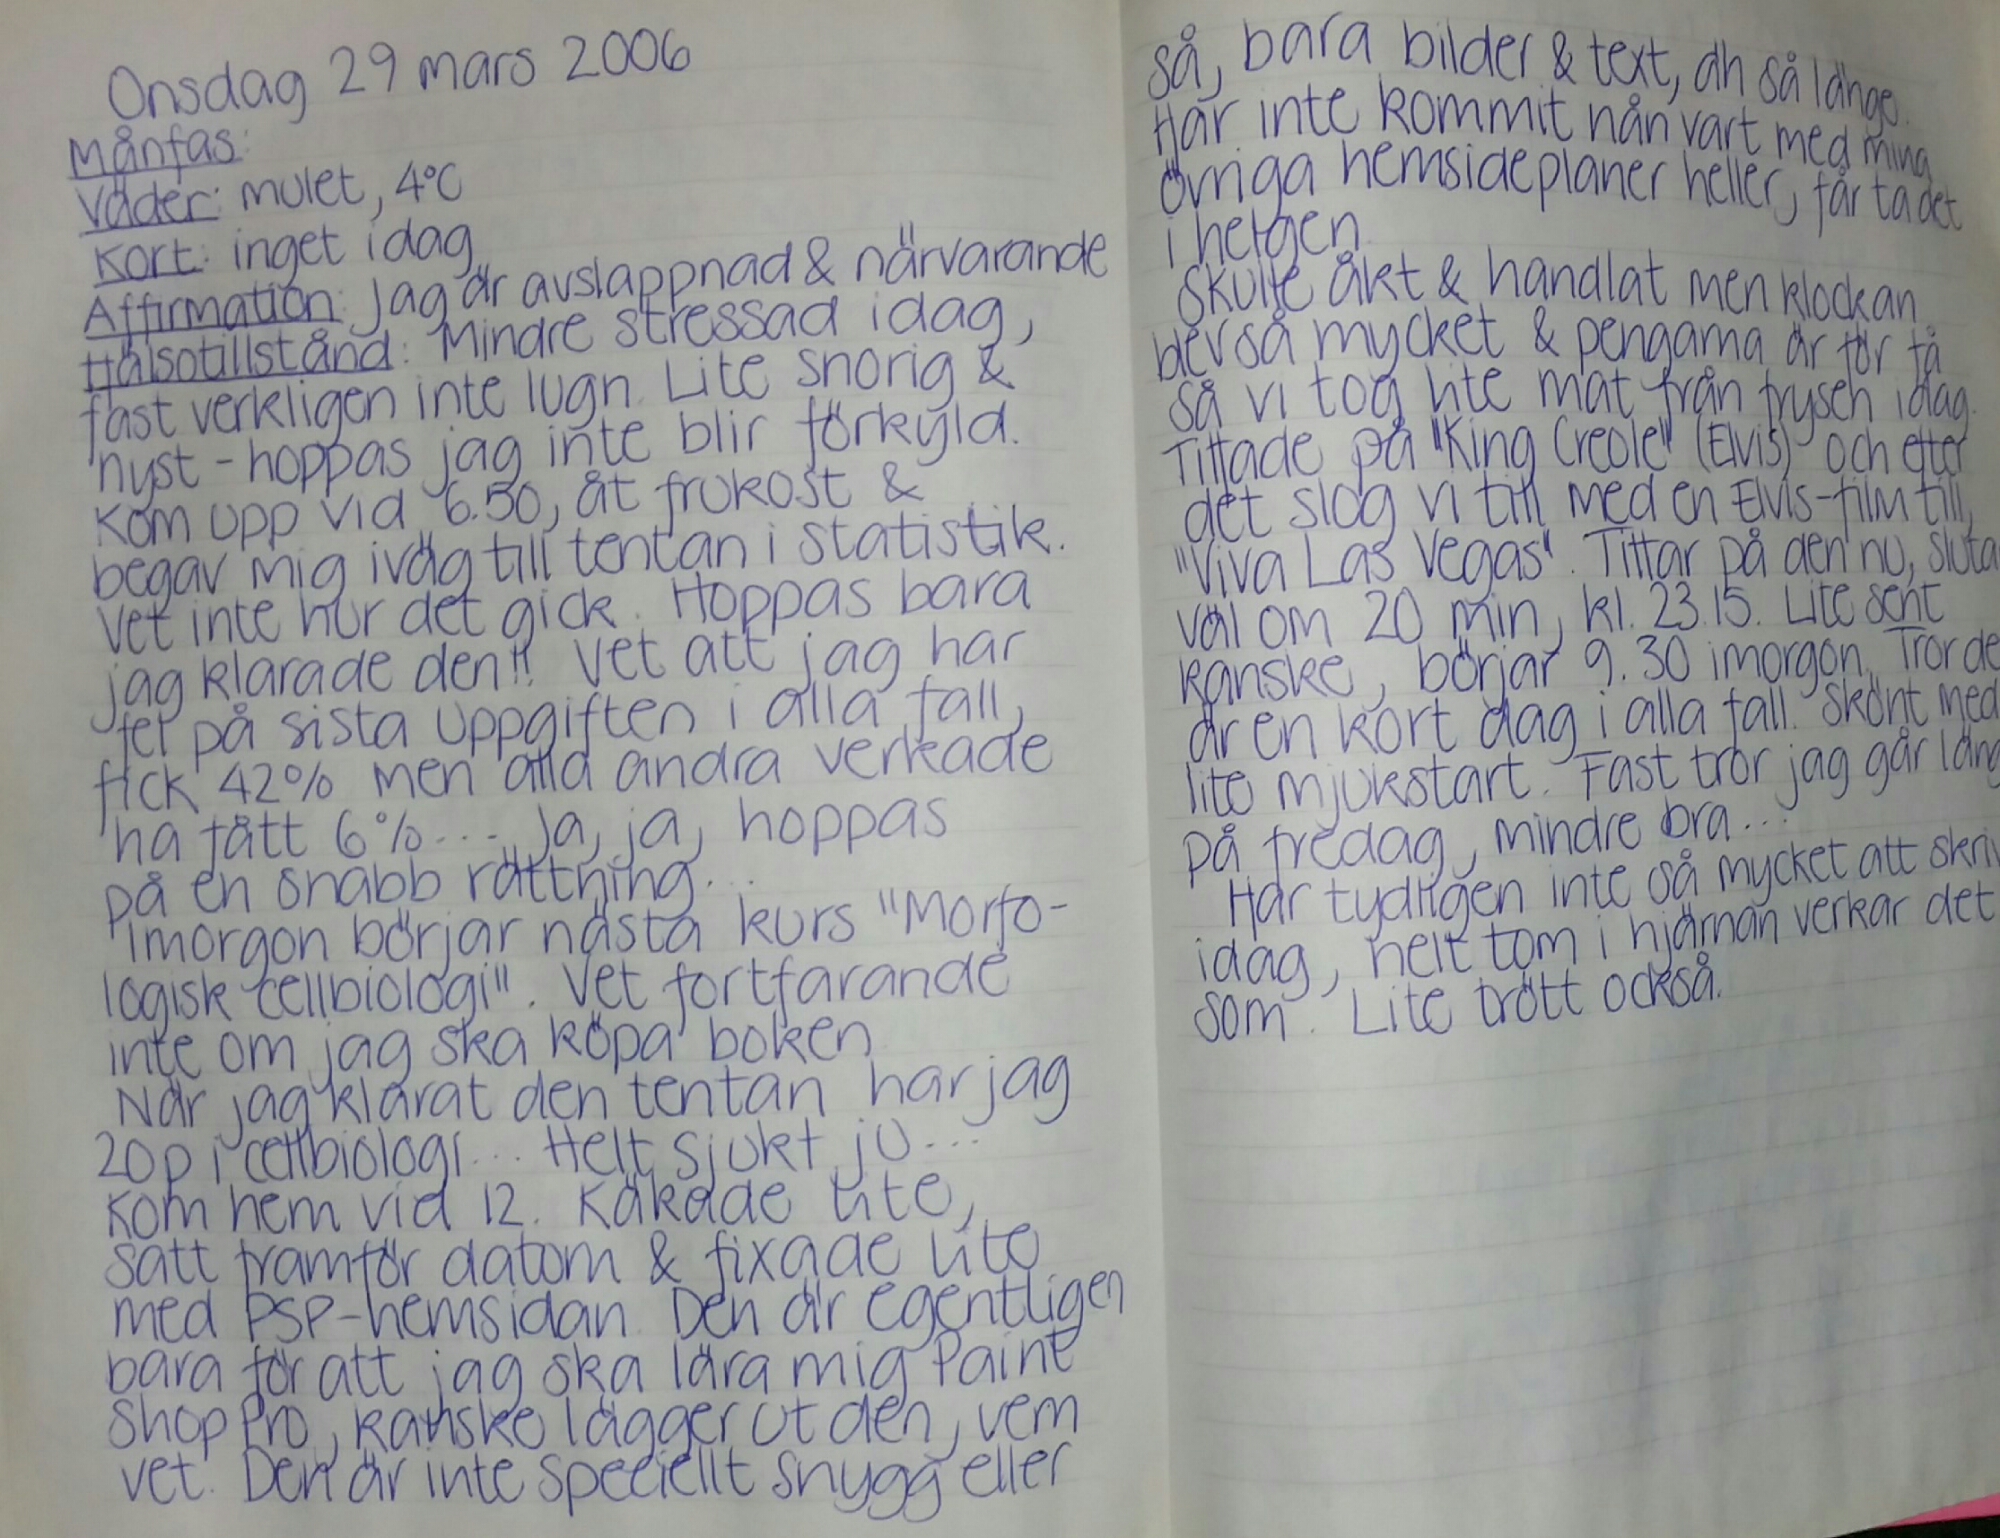 Onsdag 29 mars 2006
Månfas:
Väder: mulet, 4°C
Kort: inget idag
Affirmation: Jag är avslappnad & närvarande
Hälsotillstånd: Mindre stressad idag,
fast verkligen inte lugn. Lite snorig &
nyst - hoppas jag inte blir förkyld.
Kom upp vid 6.50, åt frukost &
begav mig iväg till tentan i statistik.
Vet inte hur det gick. Hoppas bara
jag klarade den!! Vet att jag har
fel på sista uppgiften i alla fall,
fick 42% men alla andra verkade
ha fått 6%... Ja, ja, hoppas
på en snabb rättning...
Imorgon börjar nästa kurs "Morfo-
logisk cellbiologi". Vet fortfarande
inte om jag ska köpa boken.
När jag klarat den tentan har jag
20p i cellbiologi... Helt sjukt ju...
Kom hem vid 12. Käkade lite,
satt framför datorn & fixade lite
med PSP-hemsidan. Den är egentligen
bara för att jag ska lära mig Paint
Shop Pro, kanske lägger ut den, vem
vet. Den är inte speciellt snygg eller
så, bara bilder & text, än så länge.
Har inte kommit nån vart med mina
övriga hemsideplaner heller, får ta det
i helgen.
Skulle åkt & handlat men klockan
blev så mycket & pengarna är för få
så vi tog lite mat från frysen idag.
Tittade på "King Creole" (Elvis) och efter
det slog vi till med en Elvis-film till,
"Viva Las Vegas". Tittar på den nu, sluta
väl om 20 min, kl. 23.15. Lite sent
kanske, börjar 9.30 imorgon. Tror de
är en kort dag i alla fall. Skönt med
lite mjukstart. Fast tror jag går lång
på fredag, mindre bra...
Har tydligen inte så mycket att skriv
idag, helt tom i hjärnan verkar det
som. Lite trött också.